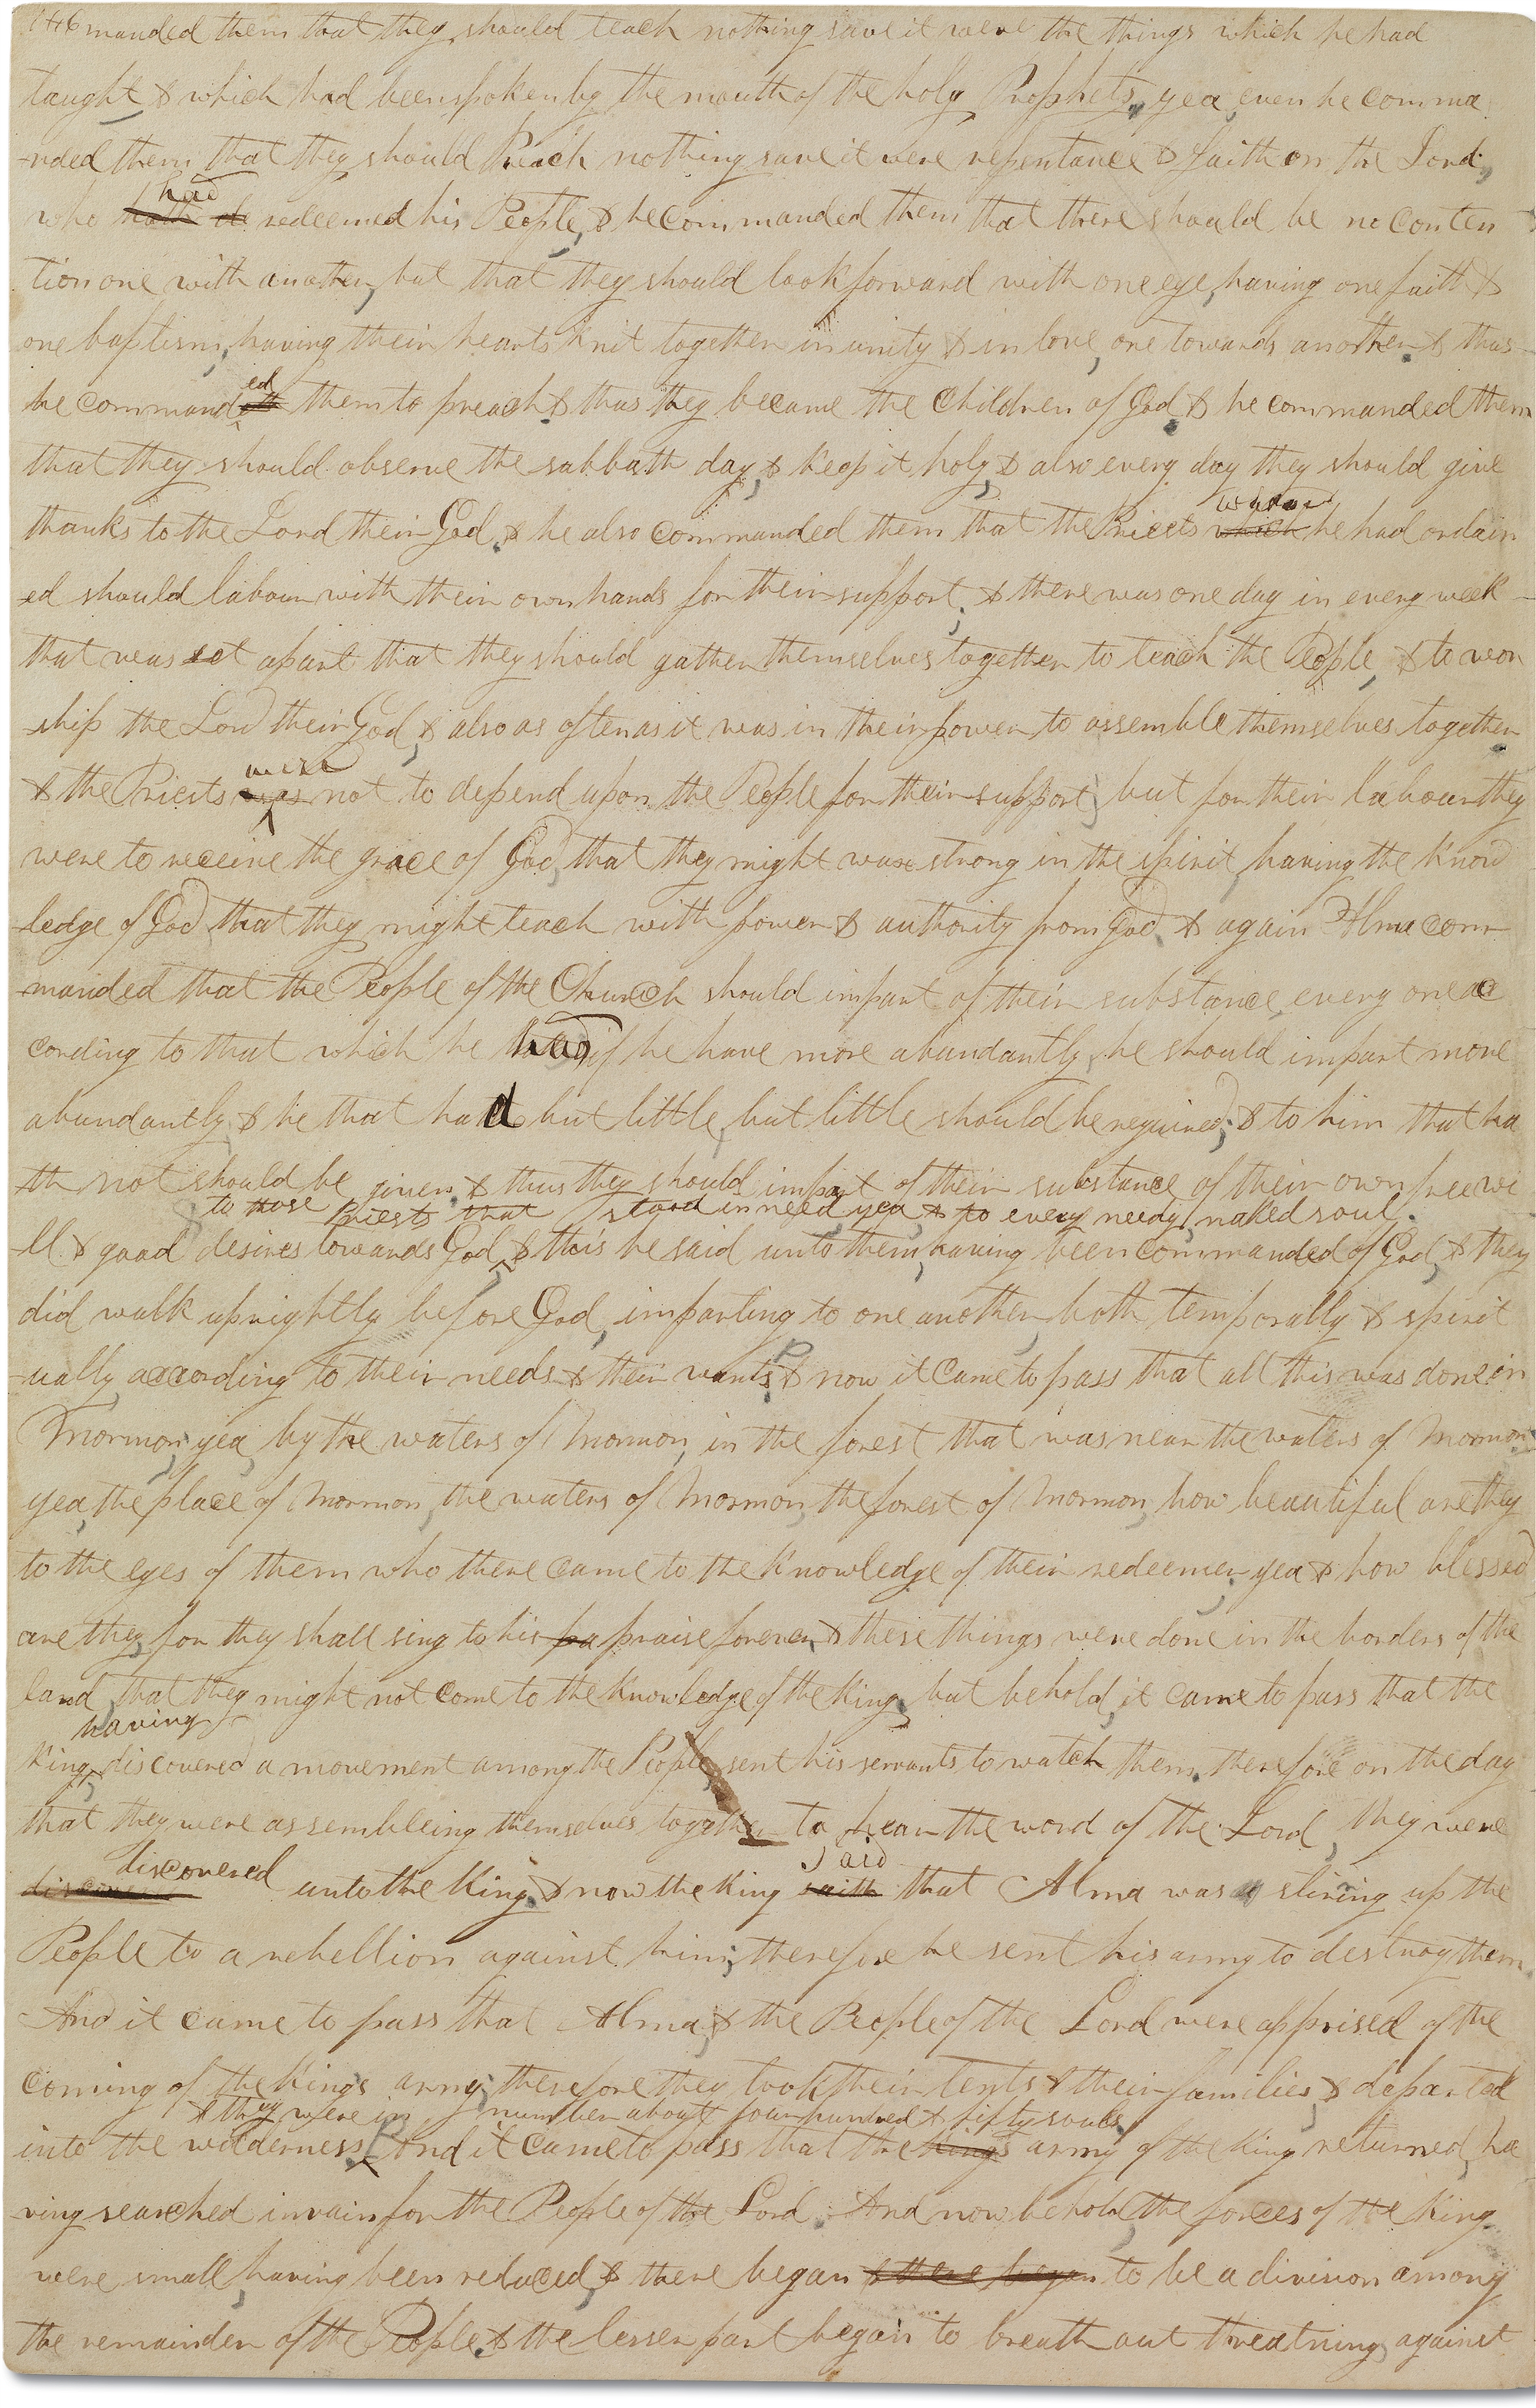 146 manded them that they should teach nothing save it were the things which he had
taught & which had been spoken by the mouth of the holy Prophets, yea, even he comma
-nded them that they should Preach nothing save it were repentance & faith on the Lord,
had
who hath de redeemed his People, & he commanded them that there should be no conten
tion one with another, but that they should look forward with one eye, having one faith &
one baptism, having their hearts knit together in unity & in love, one towards another. & thus
ed
he commandeth them to preach & thus they became the Children of God. & he commanded them
that they should observe the sabbath day, & keep it holy, & also every day they should give
whom
thanks to the Lord their God. & he also commanded them that the Priests which he had ordain
ed should labour with their own hands for their support; & there was one day in every week
that was set apart that they should gather themselves together to teach the People, & to wor
ship the Lord their God, & also as often as it was in their power to assemble themselves together
were
& the Priests was not to depend upon the People for their support, but for their labour they
were to receive the grace of God, that they might wax strong in the spirit, having the know
ledge of God, that they might teach with power & authority from God. & again Alma com
manded that the People of the Church should impart of their substance, every one ac
cording to that which he had, if he have more abundantly, he should impart more
abundantly, & he that had but little, but little should be required; & to him that ha
th not should be given. & thus they should impart of their substance of their own free wi
to those Priests that stood in need, yea & to every needy, naked soul.
ll & good desires towards God, & this he said unto them, having been commanded of God, & they
did walk uprightly before God, imparting to one another, both temporally & spirit
ually according to their needs & their wants; P & now it came to pass that all this was done in
Mormon, yea, by the waters of Mormon, in the forest that was near the waters of Mormon
yea, the place of Mormon, the waters of Mormon, the forest of Mormon, how beautiful are they
to the eyes of them who there came to the knowledge of their redeemer, yea & how blessed
are they, for they shall sing to his pa praise forever, & these things were done in the borders of the
land, that they might not come to the knowledge of the King, but behold, it came to pass that the
having
King, discovered a movement among the People, sent his servants to watch them, therefore on the day
that they were assembleing themselves together to hear the word of the Lord, they were
discovered
discovered unto the King, & now the King saith that Alma was a stiring up the
said
People to a rebellion against him; therefore he sent his army to destroy them.
And it came to pass that Alma, & the People of the Lord were apprised of the
coming of the Kings army, therefore they took their tents & their families, & departed
& they were in number about four hundred & fifty souls.
into the wilderness, P And it came to pass that the Kings army of the King returned, ha
ving searched in vain for the People of the Lord. And now behold, the forces of the King
were small, having been reduced, & there began & there began to be a division among
the remainder of the People, & the lesser part began to breath out threatning against